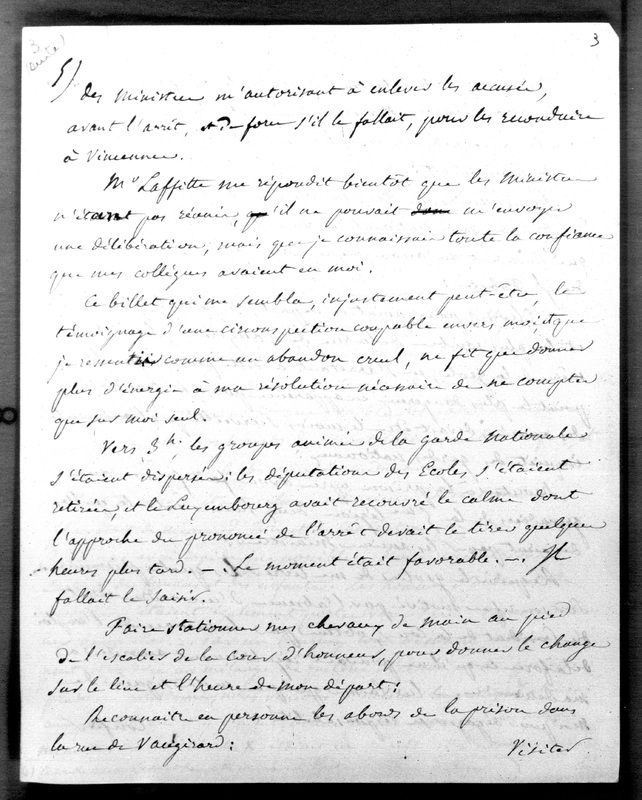 3
3
5) des Ministres m'autorisant à enlever les accusés,
avant l'arrêt, et de force s'il le fallait, pour les reconduire
à Vincennes.
Mr Laffitte me répondit bientôt que les Ministres
n'étant pas réunis, qu'il ne pouvait m'envoyer
une délibération, mais que je connaissais toute la confiance
que mes collègues avaient en moi.
Ce billet qui me sembla, injustement peut-être, le
témoignage d'une circonspection coupable envers moi, et que
je ressentis comme un abandon cruel, ne fit que donner
plus d'énergie à ma résolution nécessaire de ne compter
que sur moi seul.
Vers 3h, les groupes animés de la garde Nationale
s'étaient dispersés: les députations des Ecoles s'étaient
retirées, et le Luxembourg avait recouvré le calme dont
l'approche du prononcé de l'arrêt devait le tirer quelques
heures plus tard. — Le moment était favorable. — Il
fallait le saisir.
Faire stationner mes chevaux de main au pied
de l'escalier de la cour d'honneur, pour donner le change
sur le lieu et l'heure de mon départ;
Reconnaitre en personne les abords de la prison dans
la rue de Vaugirard:
Visiter